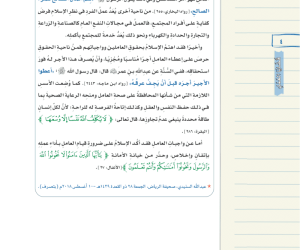 الصالح» (رواه البخاري، ...). من ناحية أخرى يُعدّ عمل الفرد في نظر الإسلام فرض
كفاية على أفراد المجتمع، فالعمل في مجالات النفع العام كالصناعة والزراعة
والتجارة والحدادة والكهرباء ونحو ذلك يُعدّ خدمة للمجتمع بأكمله.
وأخيرًا فقد اهتمّ الإسلام بحقوق العاملين وواجباتهم فمن ناحية الحقوق
حرص على إعطاء العامل أجرًا مناسبًا ومجزيًا، وأن يُصرف هذا الأجر له فور
استحقاقه، ففي السُّنّة عن عبدالله بن عمر قال: قال رسول الله «أعطوا
الأجير أجره قبل أن يجفّ عرقه» (رواه ابن ماجه، ٢٤٤٣). كما وُضعت الأسس
اللازمة التي من شأنها المحافظة على صحة العامل ومنحه الرعاية الصحية بما
في ذلك حفظ النفس والعقل وكذلك إتاحة الفرصة له للراحة؛ لأنّ لكلّ إنسان
طاقة محددة ينبغي عدم تجاوزها، قال تعالى: ﴿لَا يُكَلِّفُ اللَّهُ نَفْسًا إِلَّا وُسْعَهَا﴾
(البقرة: ٢٨٦).
أما عن واجبات العامل فقد أكد الإسلام على ضرورة قيام العامل بأداء عمله
بإتقان وإخلاص، وحذّر من خيانة الأمانة ﴿يَا أَيُّهَا الَّذِينَ آمَنُوا لَا تَخُونُوا اللَّهَ
وَالرَّسُولَ وَتَخُونُوا أَمَانَاتِكُمْ وَأَنْتُمْ تَعْلَمُونَ﴾ (الأنفال: ٢٧).
عبدالله السنيدي، صحيفة الرياض، الجمعة ٢٨ ذو القعدة ١٤٣٩هـ - ١٠ أغسطس ٢٠١٨م (بتصرف).